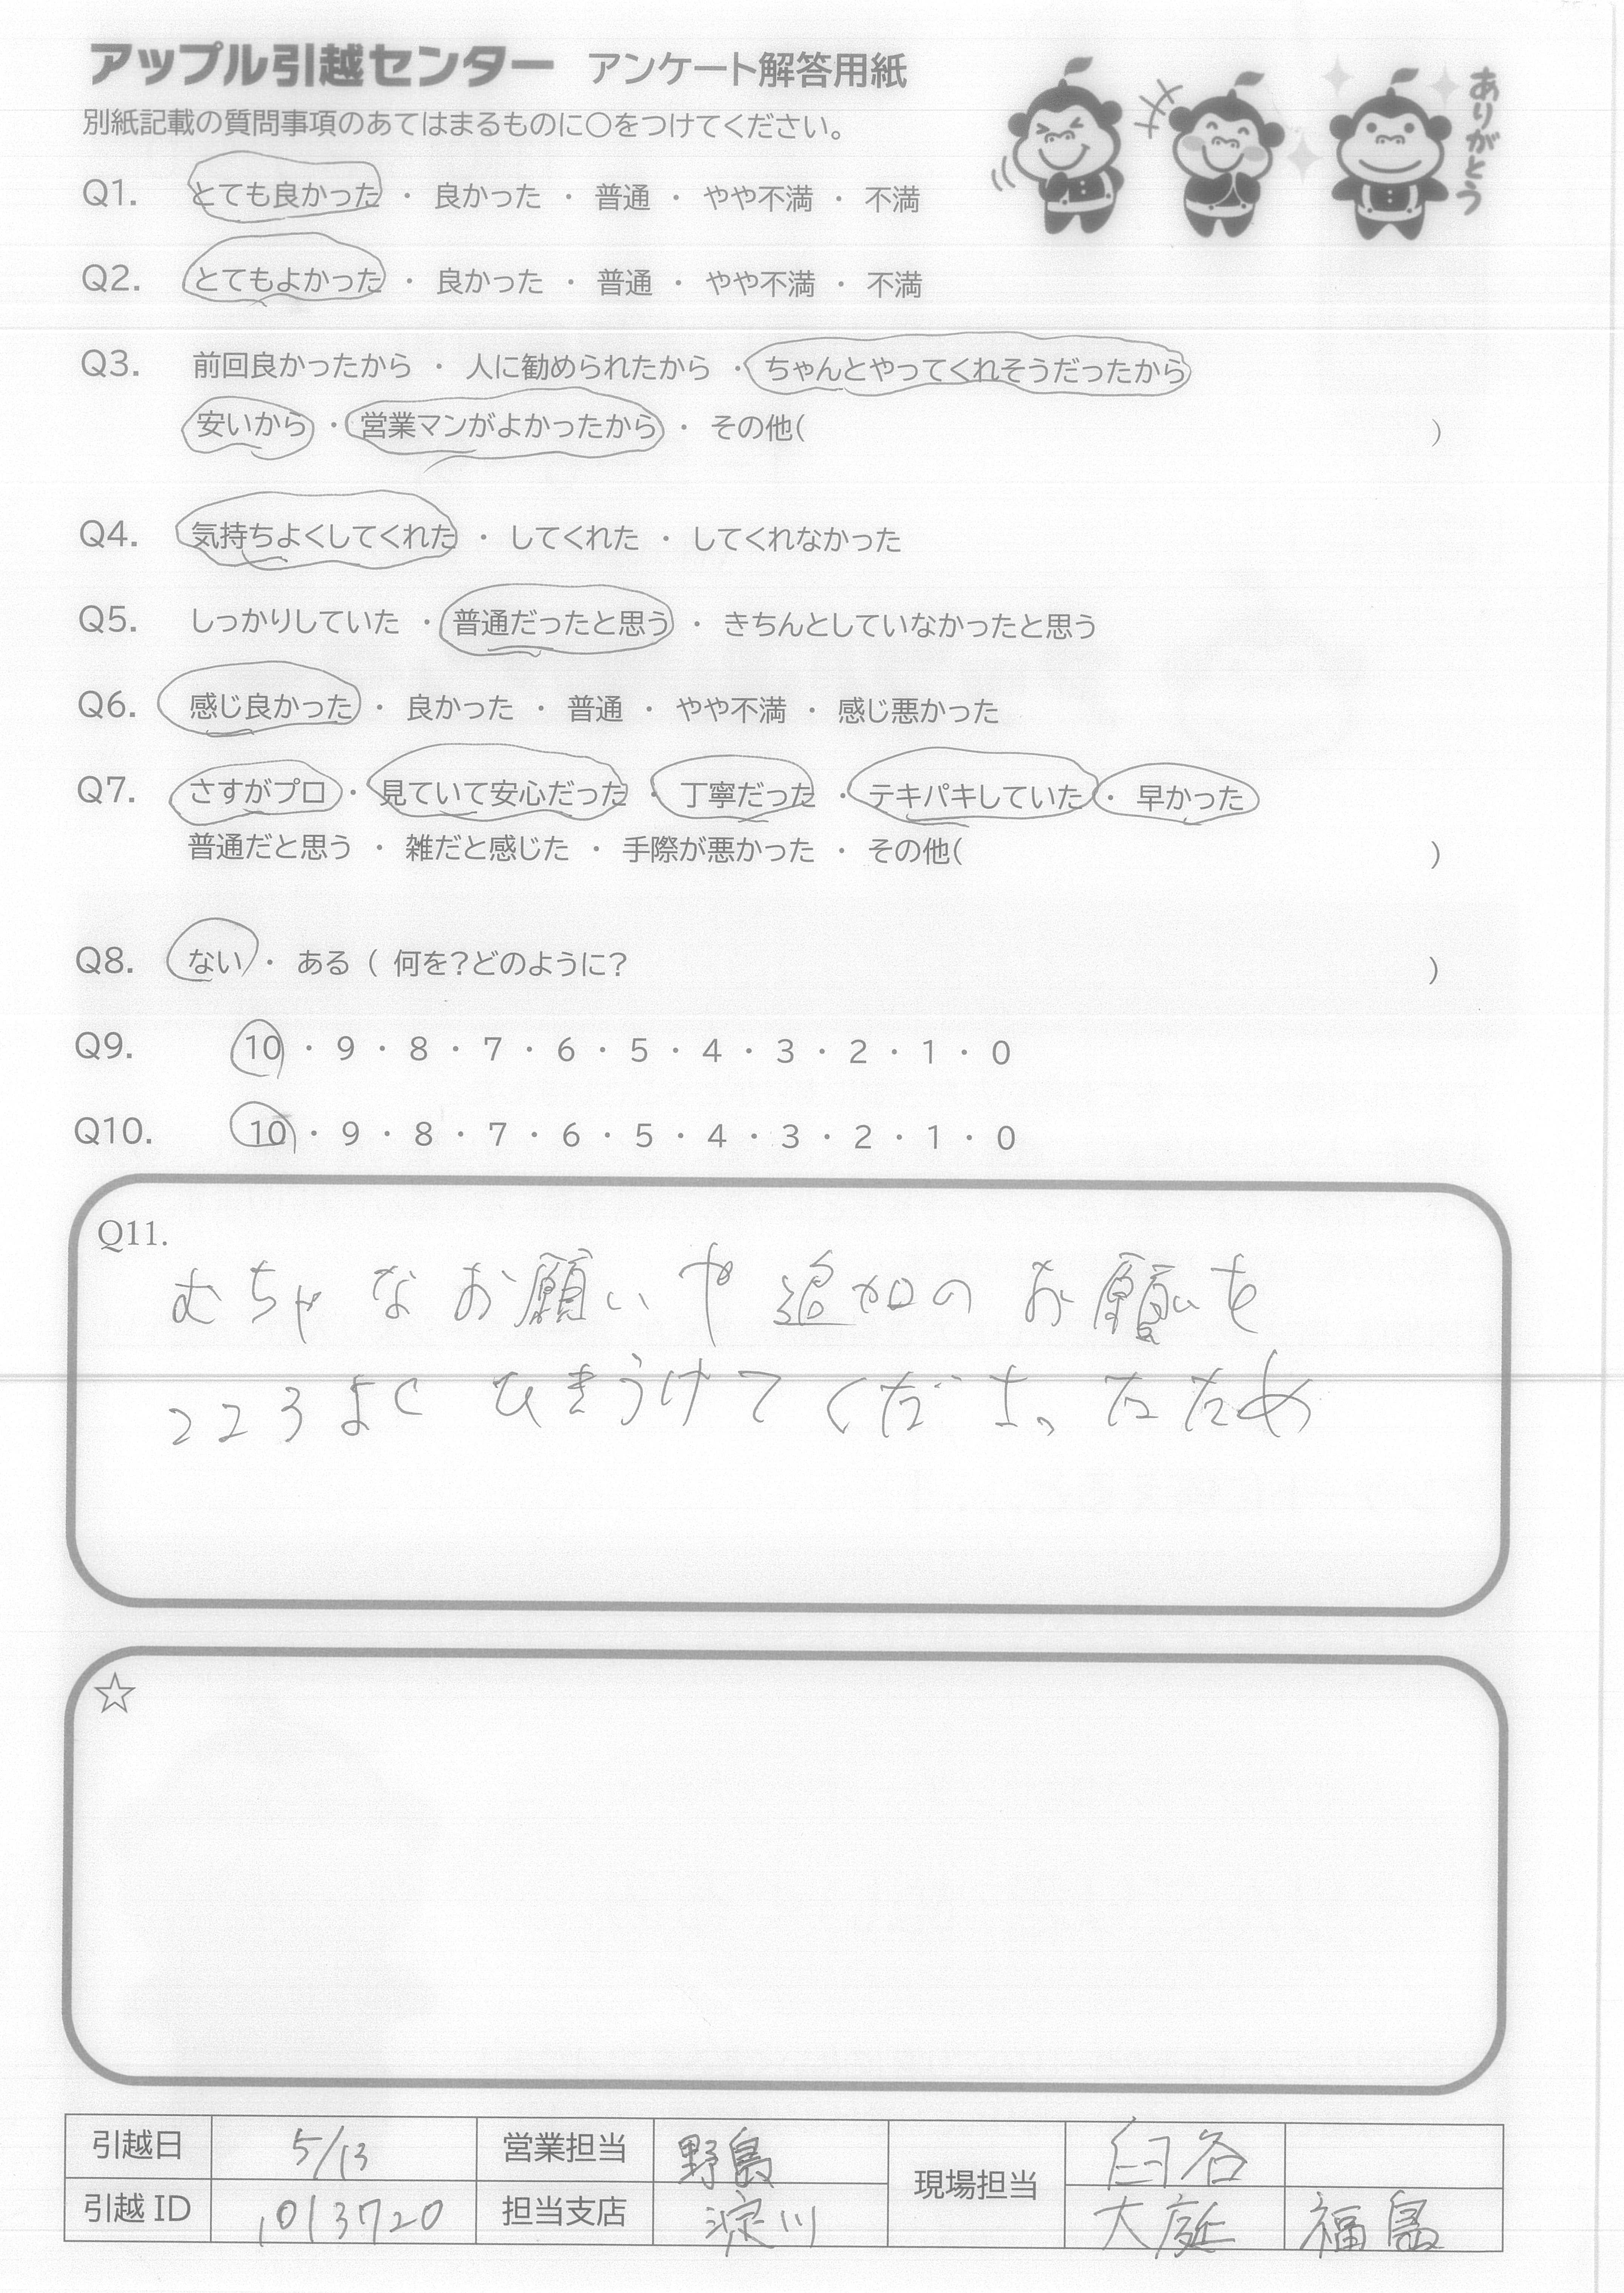 アップル引越センター アンケート解答用紙
ありがとう
別紙記載の質問事項のあてはまるものに〇をつけてください。
Q1. とても良かった ・ 良かった ・ 普通 ・ やや不満 ・ 不満
Q2. とてもよかった ・ 良かった ・ 普通 ・ やや不満 ・ 不満
Q3. 前回良かったから ・ 人に勧められたから ・ ちゃんとやってくれそうだったから
安いから ・ 営業マンがよかったから ・ その他( )
Q4. 気持ちよくしてくれた ・ してくれた ・ してくれなかった
Q5. しっかりしていた ・ 普通だったと思う ・ きちんとしていなかったと思う
Q6. 感じ良かった ・ 良かった ・ 普通 ・ やや不満 ・ 感じ悪かった
Q7. さすがプロ ・ 見ていて安心だった ・ 丁寧だった ・ テキパキしていた ・ 早かった
普通だと思う ・ 雑だと感じた ・ 手際が悪かった ・ その他( )
Q8. ない ・ ある ( 何を?どのように? )
Q9. 10 ・ 9 ・ 8 ・ 7 ・ 6 ・ 5 ・ 4 ・ 3 ・ 2 ・ 1 ・ 0
Q10. 10 ・ 9 ・ 8 ・ 7 ・ 6 ・ 5 ・ 4 ・ 3 ・ 2 ・ 1 ・ 0
Q11.
むちゃなお願いや追加のお願いを
こころよくひきうけてくださったため
☆
引越日 5/13 営業担当 野島 現場担当 臼谷
引越ID 1013720 担当支店 淀川 大庭 福島